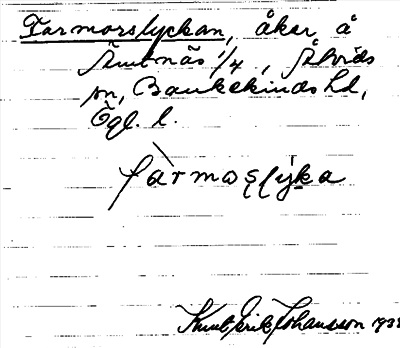 Farmorslyckan, åker å
Ämtnäs 1/4, Åtvids
sn, Bankekinds hd,
Ögl. l.
fàrmoșlyka
Knut Erik Johansson